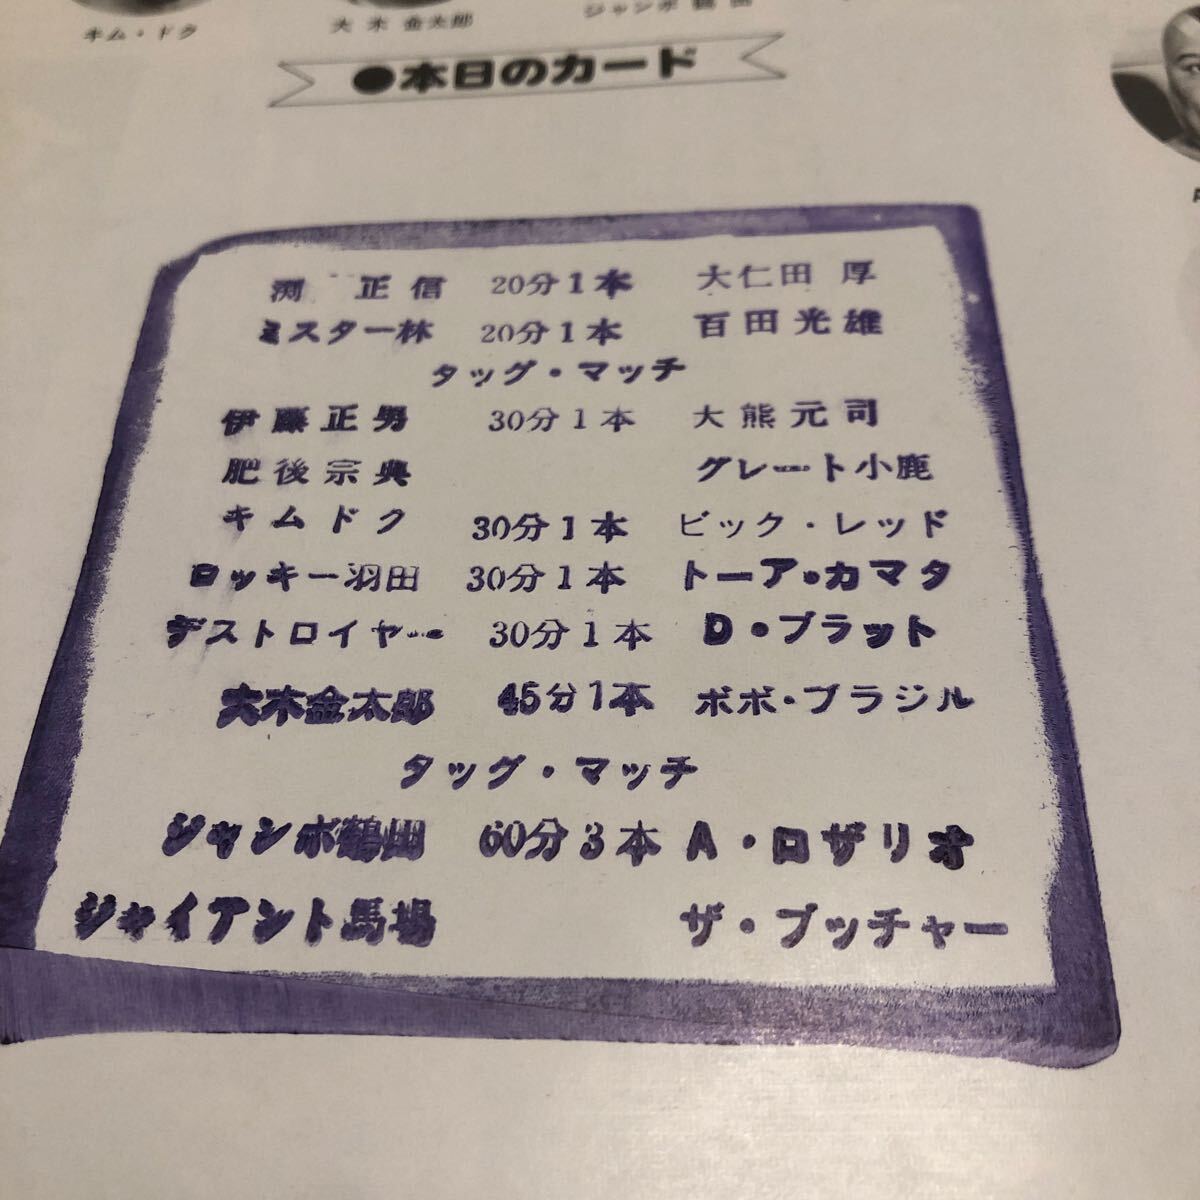 キム・ドク
大木金太郎
ジャンボ鶴田
●本日のカード
渕 正信 20分1本 大仁田 厚
ミスター林 20分1本 百田光雄
タッグ・マッチ
伊藤正男 30分1本 大熊元司
肥後宗典 グレート小鹿
キムドク 30分1本 ビック・レッド
ロッキー羽田 30分1本 トーア・カマタ
デストロイヤー 30分1本 D・ブラット
大木金太郎 45分1本 ボボ・ブラジル
タッグ・マッチ
ジャンボ鶴田 60分3本 A・ロザリオ
ジャイアント馬場 ザ・ブッチャー